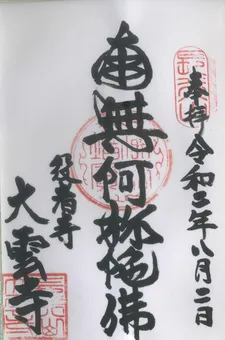 奉拝 令和三年八月二日
南無阿弥陀佛
役者寺
大雲寺